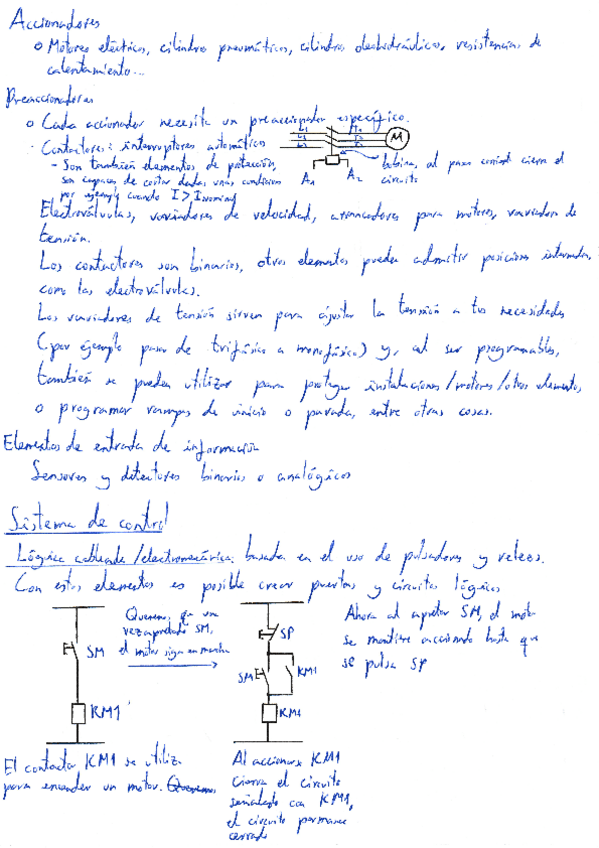 Accionadores
o Motores eléctricos, cilindros pneumáticos, cilindros oleohidráulicos, resistencias de
calentamiento...
Preaccionadores
o Cada accionador necesita un preaccionador específico.
· Contactores: interruptores automáticos
- Son también elementos de protección,
son capaces de cortar dadas unas condiciones
por ejemplo cuando I > Inominal
L1
L2
L3
T1
M
A1
A2
bobina, al pasar corriente cierra el
circuito
Electroválvulas, variadores de velocidad, arrancadores para motores, variadores de
tensión.
Los contactores son binarios, otros elementos pueden admitir posiciones intermedias,
como las electroválvulas.
Los variadores de tensión sirven para ajustar la tensión a tus necesidades
(por ejemplo pasar de trifásico a monofásico) y, al ser programables,
también se pueden utilizar para proteger instalaciones/motores/otros elementos,
o programar rampas de inicio o parada, entre otras cosas.
Elementos de entrada de información
Sensores y detectores binarios o analógicos
Sistema de control
Lógica cableada/electromecánica: basada en el uso de pulsadores y relees.
Con estos elementos es posible crear puertas y circuitos lógicos
SM
KM1
Queremos que una
vez apretado SM,
el motor siga en marcha
SP
SM
KM1
KM1
Ahora al apretar SM, el motor
se mantiene accionado hasta que
se pulsa SP
El contactor KM1 se utiliza
para encender un motor. Queremos
Al accionarse KM1
cierra el circuito
señalado con KM1,
el circuito permanece
cerrado